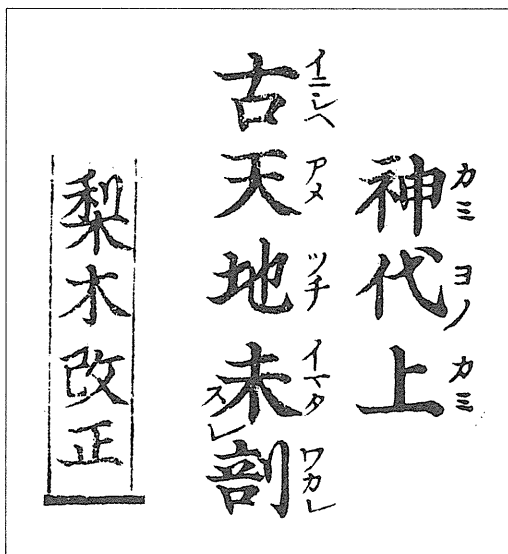 神代上
カミ ヨノ カミ
古天地未剖
イニシヘ アメ ツチ イマタ ワカレ
スレ
梨木改正